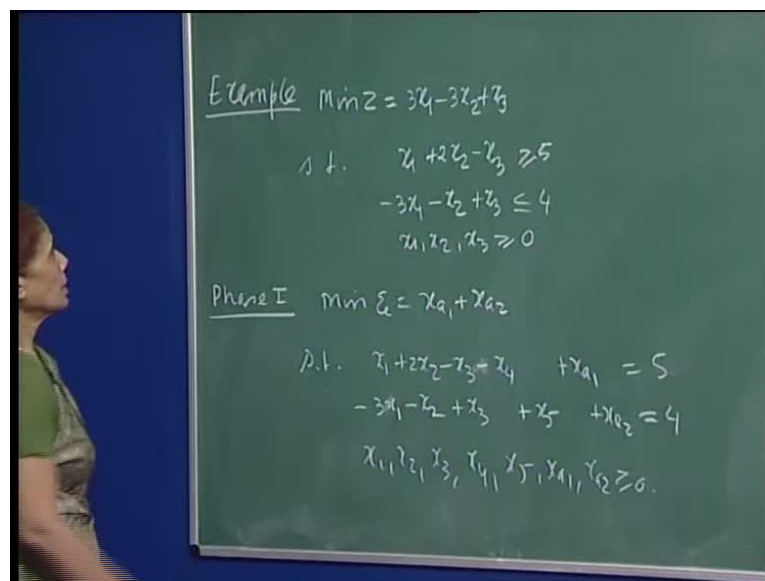 Example Min Z = 3x₁-3x₂+x₃
s.t. x₁+2x₂-x₃ ≥ 5
-3x₁-x₂+x₃ ≤ 4
x₁,x₂,x₃ ≥ 0
Phase I min ξ = xa₁+xa₂
s.t. x₁+2x₂-x₃-x₄ +xa₁ = 5
-3x₁-x₂+x₃ +x₅ +xa₂ = 4
x₁,x₂,x₃,x₄,x₅,xa₁,xa₂ ≥ 0.